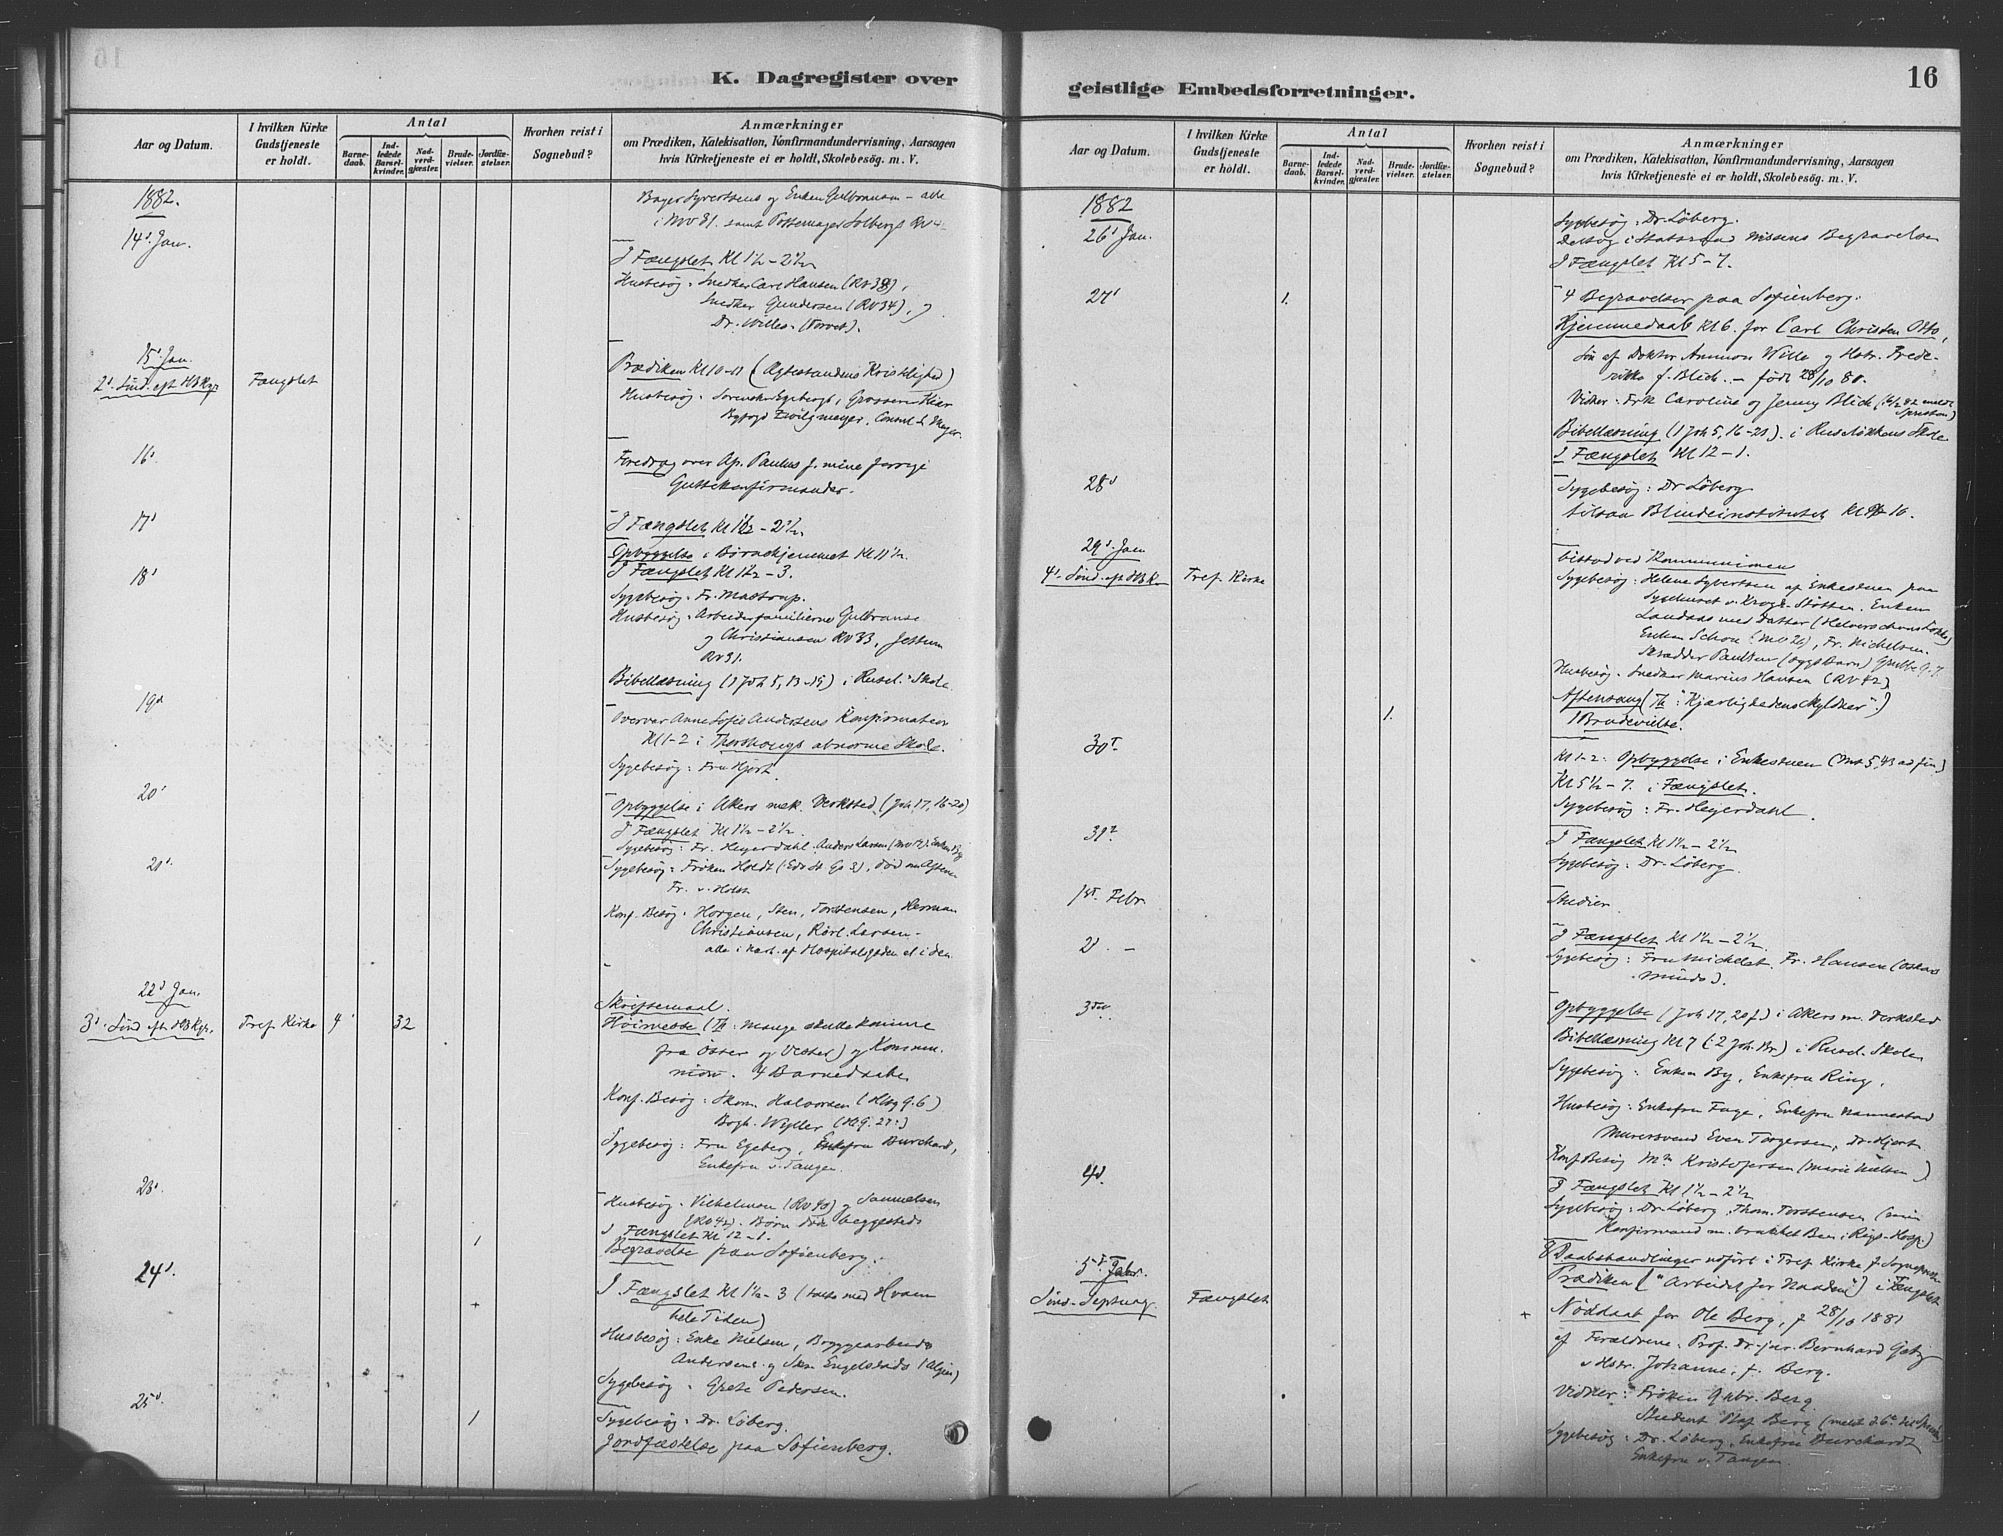 K. Dagregister over
Aar og Datum.
I hvilken Kirke
Gudstjeneste
er holdt.
Antal
Barne-
daab.
Ind-
ledede
Barsel-
kvinder.
Nad-
verd-
gjester.
Brude-
vielser.
Jordfæ-
stelser.
Hvorhen reist i
Sognebud?
Anmærkninger
om Prædiken, Katekisation, Konfirmandundervisning, Aarsagen
hvis Kirketjeneste ei er holdt, Skolebesög. m. V.
1882.
Bager Syvertsens og Enken Gulbransen - alle
14d Jan.
I Fængslet Kl 1½ - 2½
Husbesøg: Snedker Carl Hansen (RV 38),
Snedker Gundersen (RV 34),
Dr. Willes (Torvet).
15d Jan.
2d Sönd. eft HBKgr
Fængslet
Prædiken Kl 10-11 (Ægtestandens Kristlighed)
16d
Foredrag over Ap. Paulus f. mine forrige
Guttekonfirmander.
17d
I Fængslet Kl 1½ - 2½.
Opbyggelse i Børnehjemmet Kl 11½
18d
I Fængslet Kl 1½ - 3.
Sygebesøg: Fr. Mastrup.
Husbesøg: Arbeiderfamilierne Gulbranse
og Christiansen RV 33, Jessum
RV 31.
Bibellæsning (1 Joh 5, 13-15) i Rusel. Skole.
19d
Overvar Anne Sofie Andersens Konfirmation
Kl 1-2 i Thorshaugs abnorme Skole.
Sygebesøg: Fru Hjort.
20d
Opbyggelse i Akers mek. Verksted (Joh 17, 16-20)
I Fængslet Kl 1½ - 2½.
Sygebesøg: Fr. Heyerdahl. Anders Larsen
21d
Sygebesøg: Frøken Holdt
Fr. v. Holst
Konf. Besøg: Horgen, Sten, Torstensen, Herman
Christiansen, Larsen -
22d Jan.
3d Sönd eft HBKgr.
Tref. Kirke
4
32
Skriftemaal.
Høimesse (Th: Mange skulle komme
fra Öster og Vester) og Kommu-
nion. 4 Barnedaabe
Konf. Besøg: Skom. Halvorsen
Bogh. Wyller
Sygebesøg: Fru Egeberg, Enkefru Burchard,
Enkefru v. Tangen.
23d
Husbesøg: Vilhelmsen og Samuelsen
(RV 42). Børn døde beggesteds
I Fængslet Kl 12-1.
1
Begravelse paa Sofienberg.
24d.
I Fængslet Kl 1½ - 3 (talte med Hvam
hele Tiden)
+
Husbesøg: Enke Nielsen, Bryggearbeider
Andersens og Skr. Engelstads
Sygebesøg: Grete Pedersen.
25d.
1
Sygebesøg: Dr. Løberg.
Jordfæstelse paa Sofienberg.
geistlige Embedsforretninger.
16
Aar og Datum.
I hvilken Kirke
Gudstjeneste
er holdt.
Antal
Barne-
daab.
Ind-
ledede
Barsel-
kvinder.
Nad-
verd-
gjester.
Brude-
vielser.
Jordfæ-
stelser.
Hvorhen reist i
Sognebud?
Anmærkninger
om Prædiken, Katekisation, Konfirmandundervisning, Aarsagen
hvis Kirketjeneste ei er holdt, Skolebesög. m. V.
1882
Sygebesøg: Dr. Løberg.
26d Jan.
Deltog i Statsraad Nissens Begravelse
I Fængslet Kl 5-7.
27d
1.
4 Begravelser paa Sofienberg.
Hjemmedaab Kl 6. for Carl Christen Otto,
Søn af Doktor Ammon Wille og Hstr. Frede-
rikke f. Blich. - født 28/10 81.
Vidner: Frk Caroline og Jenny Blich
Bibellæsning (1 Joh 5, 16-21). i Rusеløkkens Skole
I Fængslet Kl 12-1.
28d
Sygebesøg: Dr Løberg
tilsaa Blindeinstitutet
29d Jan
4d Sönd. eft HBK.
Tref. Kirke
bistod ved Kommunionen
Sygebesøg: Helene Syvertsen af Enkestuen paa
Sygehuset v. Krogh-Støtten. Enken
Landaas med Datter
Enken Schou (MV 26), Fr. Michelsen.
Skrædder Paulsen (sygt Barn) Grubbeg. 7.
Husbesøg: Snedker Marius Hansen (RV 42)
Aftensang (Th: "Kjærlighedens Skyldner".)
1.
1 Brudevielse.
30d
Kl 1-2: Opbyggelse i Enkestuen (Mt 5, 43 ad fin)
Kl 5½ - 7. i Fængslet.
Sygebesøg: Fr. Heyerdahl.
31d
I Fængslet Kl 1½ - 2½
Sygebesøg: Dr. Løberg.
1st Febr.
Studier.
2d. -
I Fængslet Kl 1½ - 2½.
Sygebesøg: Fru Michelet. Fr. Hansen (Oskars
Minde).
3die
Opbyggelse (Joh 17, 20 f.) i Akers m. Verksted
Bibellæsning Kl 7 (2 Joh. Br) i Rusel. Skole
Sygebesøg: Enken By, Enkefru Ring.
Husbesøg: Enkefru Fuge, Enkefru Nannestad
Murersvend Even Torgersen, Dr. Hjort
Konf Besøg Kristofersen (Marie Nielsen)
4d.
I Fængslet Kl 1½ - 2½
Sygebesøg: Dr. Løberg, Thom. Torstensen (min
Konfirmand m. brukket Ben i Rigs-Hosp.)
8 Daabshandlinger udført i Tref. Kirke f. Sognepr.
5te Febr.
Sönd. Septuag.
Fængslet
Prædiken ("Arbeidet for Naaden") i Fængslet
+
Nöddaab for Ole Berg, f 28/10 1881
af Forældrene, Prof. Dr. jur. Bernhard Getz
og Hstr. Johanne, f. Berg.
Vidner: Frøken Berg
Student Olaf Berg
Sygebesøg: Dr. Løberg, Enkefru Burchardt
Enkefru v. Tangen.